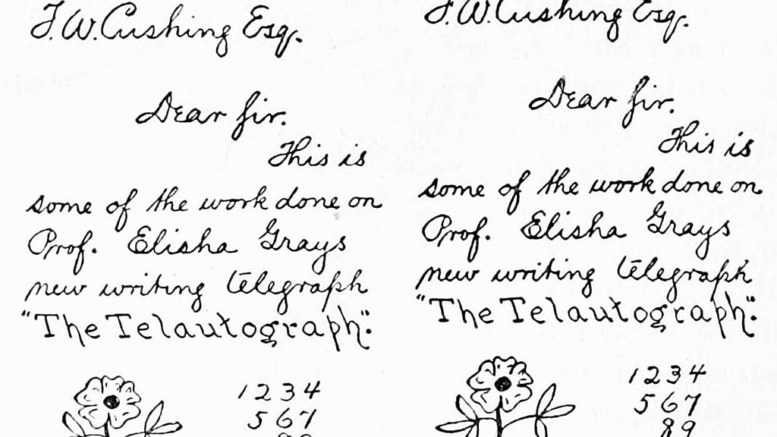 F.W. Cushing Esq.
Dear Sir.
This is
some of the work done on
Prof. Elisha Grays
new writing telegraph
"The Telautograph".
1 2 3 4
5 6 7
8 9
F.W. Cushing Esq.
Dear Sir.
This is
some of the work done on
Prof. Elisha Grays
new writing telegraph
"The Telautograph".
1 2 3 4
5 6 7
8 9